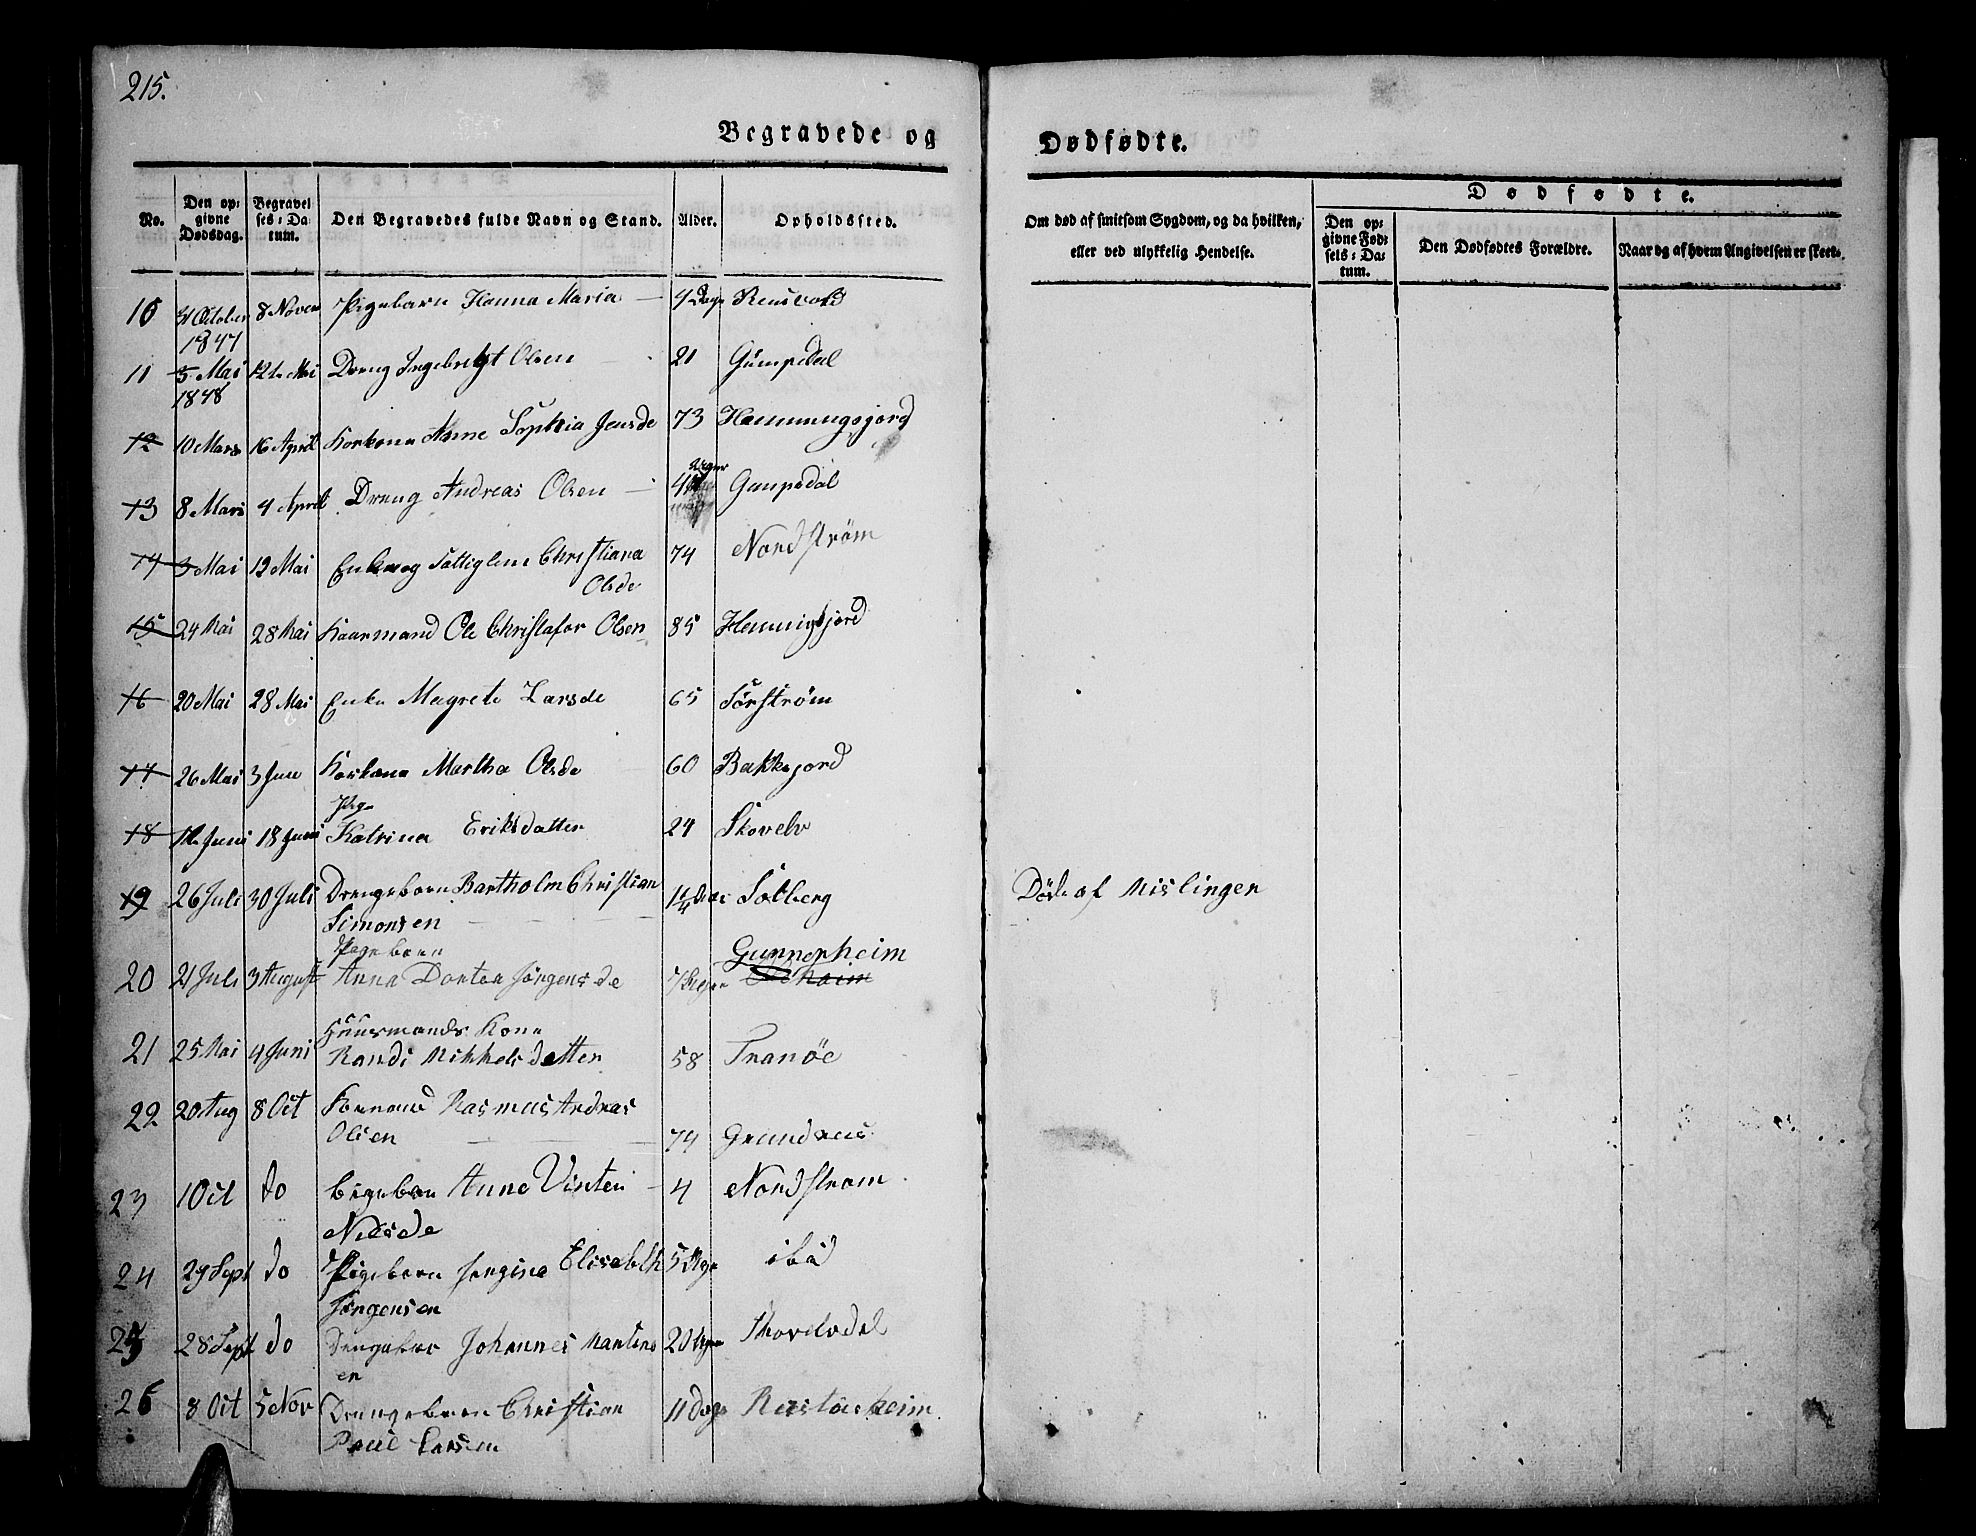 215.
Begravede og
Dødfødte.
No.
Den op-
givne
Dødsdag.
Begravel-
ses-Da-
tum.
Den Begravedes fulde Navn og Stand.
Alder.
Opholdssted.
Om død af smitsom Sygdom, og da hvilken,
eller ved ulykkelig Hendelse.
Dødfødte.
Den op-
givne Fød-
sels-Da-
tum.
Den Dødfødtes Forældre.
Naar og af hvem Angivelsen er skeet.
10 31 October 8 Novem Pigebarn Hanna Maria 4 Dage
1847
11 5 Mai 12te Mai Dreng Ingebrigt Olsen 21 Gumpedal
1848
12 10 Mars 16 April Korkona Anne Sophia Jensde 73 Hemmingsjord
13 8 Mars 4 April Dreng Andreas Olsen 4 Uger Gumpedal
14 3 Mai 12 Mai Christiana 74 Nordstrøm
Olsde
15 24 Mai 28 Mai Kaarmand Ole Christafor Olsen 85 Hemmigsjord
16 20 Mai 28 Mai Enke Magrete Larsde 65 Sørstrøm
17 26 Mai 3 Juni Korkona Martha Olsde 60 Bakkejord
Pige
18 12 Juni 18 Juni Katrina Eriksdatter 24 Skovelv
19 26 Juli 30 Juli Drengebarn Bartholm Christian 1 1/4 Aar Solberg Døde af Mislingen
Simonsen
Pigebarn Gunnerheim
20 21 Juli 3 August Anna Dortea Jørgensde 7 Uger
Huusmands Kone
21 25 Mai 4 Juni Randi Mikkelsdatter 58 Tranöe
22 20 Aug 8 Oct Rasmus Andreas
Olsen 74
23 1 Oct do Pigebarn Anne 4 Nordstrøm
Nilsde
24 29 Sept do Pigebarn Jørgine Elisabeth 5 Uger ibid
Jørgensen
25 28 Sept do Drengebar Johannes Martins 20 Uger Skovelvdal
en
26 8 Oct 5 Nov Drengebarn Christian 11 Dage
Larsen